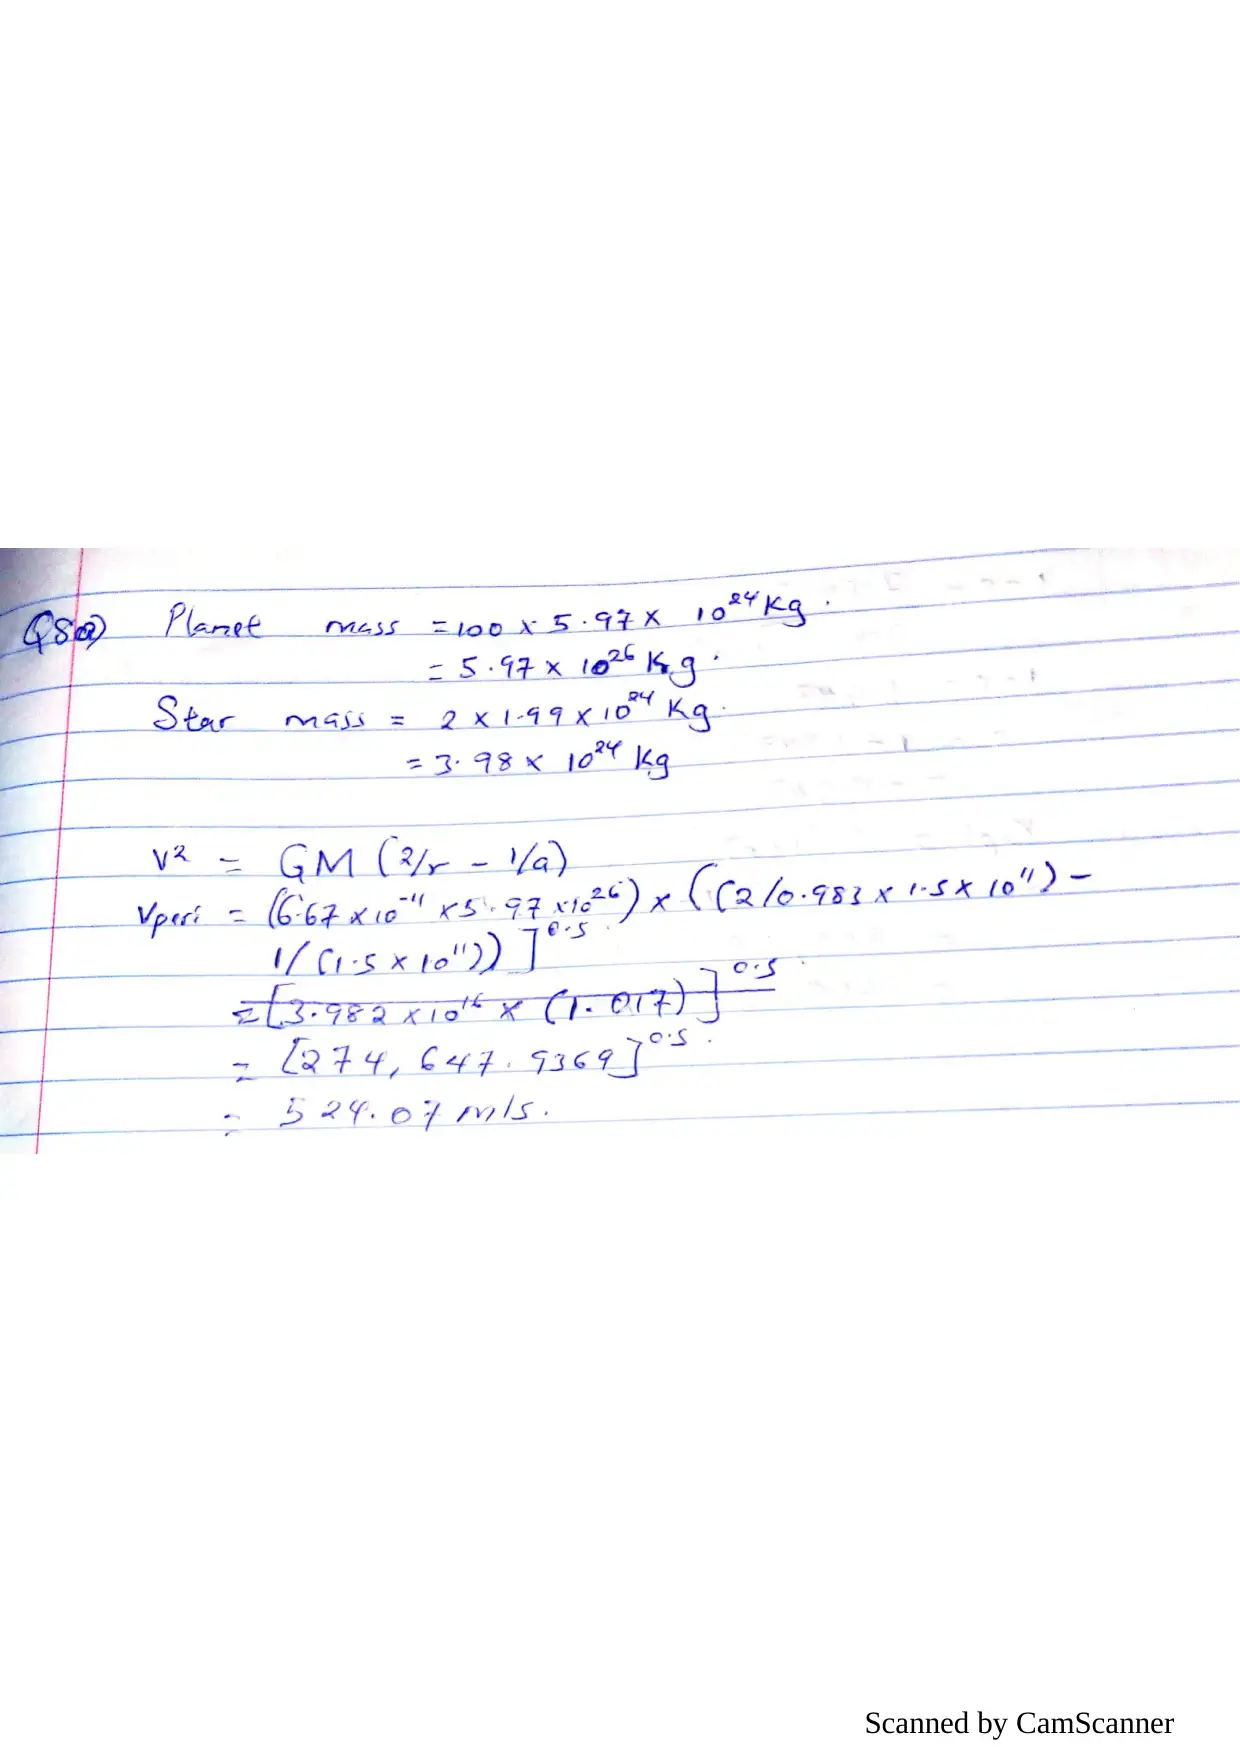 Q5a) Planet mass = 100 x 5.97 x 10²⁴ Kg.
= 5.97 x 10²⁶ Kg.
Star mass = 2 x 1.99 x 10²⁴ Kg.
= 3.98 x 10²⁴ Kg
V² = GM (2/r - 1/a)
Vperi = (6.67 x 10⁻¹¹ x 5.97 x 10²⁶) x ((2/0.983 x 1.5 x 10¹¹) -
1/(1.5 x 10¹¹))]⁰·⁵.
= [3.982 x 10¹⁶ x (1.017)]⁰·⁵
= [274,647.9369]⁰·⁵.
= 524.07 m/s.
Scanned by CamScanner